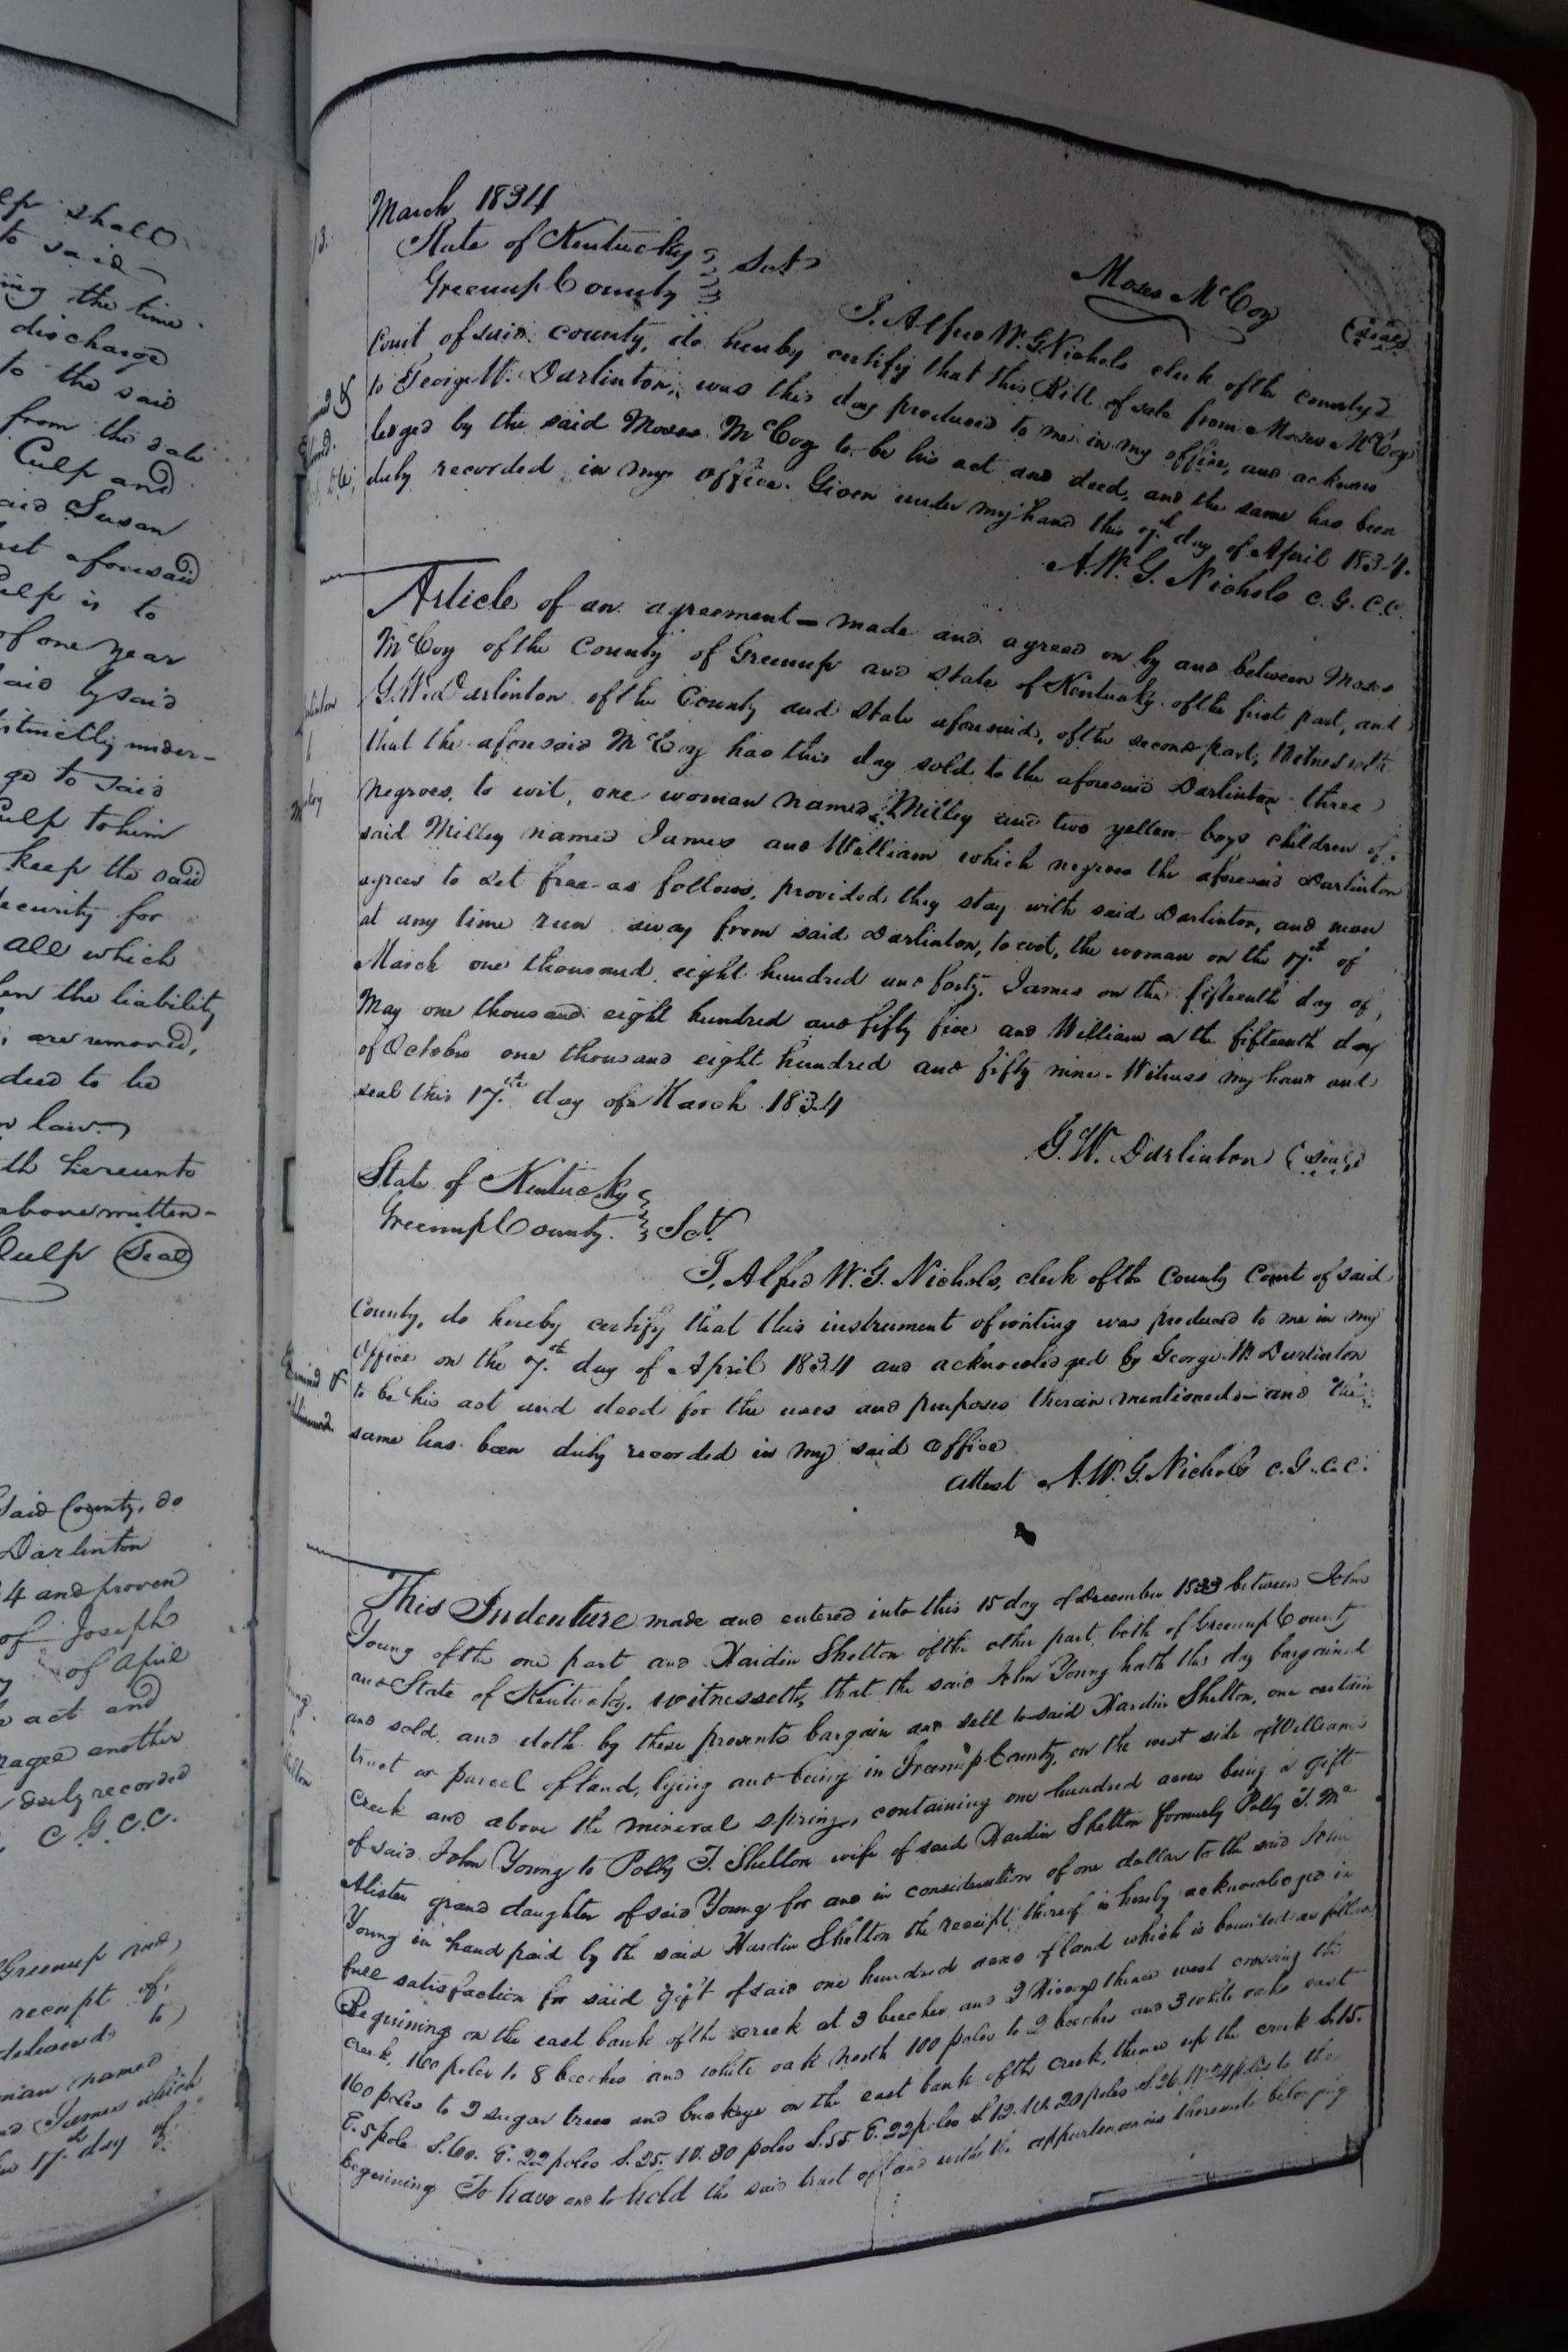 lp shall
to said
ing the time
discharge
to the said
from the date
Culp and
said Susan
aforesaid
Culp is to
of one year
said by said
distinctly under-
ge to said
Culp to him
keep the said
security for
all which
the liability
are removed,
deed to be
law.
th hereunto
above written-
Culp (Seal)
Said County, do
Darlinton
4 and proven
of Joseph
of April
act and
another
duly recorded
C. G. C. C.
Greenup and
receipt of
delivered to
named
James which
17th day of
March 1834
Moses McCoy (Seal)
State of Kentucky
Greenup County } Sct
I, Alfred W. G. Nichols clerk of the county
Court of said county, do hereby certify that this Bill of sale from Moses McCoy
to George W. Darlinton, was this day produced to me in my office, and acknow
ledged by the said Moses McCoy to be his act and deed, and the same has been
duly recorded in my office. Given under my hand this 7th day of April 1834.
A. W. G. Nichols C. G. C. C.
Article of an agreement - made and agreed on by and between Moses
McCoy of the County of Greenup and state of Kentucky of the first part, and
G. W. Darlinton of the County and state aforesaid, of the second part, Witnesseth
that the aforesaid McCoy has this day sold to the aforesaid Darlinton three
negroes, to wit, one woman named Milley and two yellow boys children of
said Milley named James and William which negroes the aforesaid Darlinton
agrees to set free as follows, provided they stay with said Darlinton, and never
at any time run away from said Darlinton, to wit, the woman on the 17th of
March one thousand eight hundred and forty, James on the fifteenth day of
May one thousand eight hundred and fifty five and William on the fifteenth day
of October one thousand eight hundred and fifty nine. Witness my hand and
seal this 17th day of March 1834
G. W. Darlinton (Seal)
State of Kentucky
Greenup County. } Sct.
I, Alfred W. G. Nichols, clerk of the County Court of said
County, do hereby certify that this instrument of writing was produced to me in my
office on the 7th day of April 1834 and acknowledged by George W. Darlinton
to be his act and deed for the uses and purposes therein mentioned - and the
same has been duly recorded in my said office
Attest A. W. G. Nichols C. G. C. C.
This Indenture made and entered into this 15 day of December 1833 between John
Young of the one part and Hardin Shelton of the other part, both of Greenup County
and State of Kentucky, witnesseth, that the said John Young hath this day bargained
and sold, and doth by these presents bargain and sell to said Hardin Shelton, one certain
tract or parcel of land, lying and being in Greenup County, on the west side of Williams
Creek and above the mineral spring, containing one hundred acres being a gift
of said John Young to Polly T. Shelton wife of said Hardin Shelton formerly Polly T. Mc
Alister grand daughter of said Young for and in consideration of one dollar to the said John
Young in hand paid by the said Hardin Shelton the receipt thereof is hereby acknowledged in
full satisfaction for said gift of said one hundred acres of land which is bounded as follows
Beginning on the east bank of the creek at 3 beeches and 2 thence west crossing the
creek, 160 poles to 8 beeches and white oak north 100 poles to 2 beeches and 3 white oaks east
160 poles to 2 sugar trees and buckeye on the east bank of the creek, thence up the creek S. 15.
E. 5 pole S. 60. E. 22 poles S. 25. W. 30 poles S. 55 E. 22 poles S 12. W. 20 poles S. 26. W. 24 poles to the
beginning To have and to hold the said tract of land with the appurtenances thereunto belonging